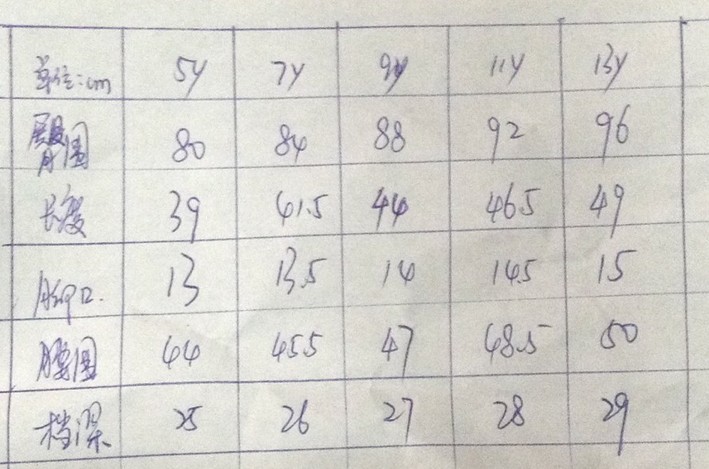 单位:cm 5Y 7Y 9Y 11Y 13Y
臀围 80 84 88 92 96
长度 39 41.5 44 46.5 49
脚口. 13 13.5 14 14.5 15
腰围 44 45.5 47 48.5 50
档深 25 26 27 28 29